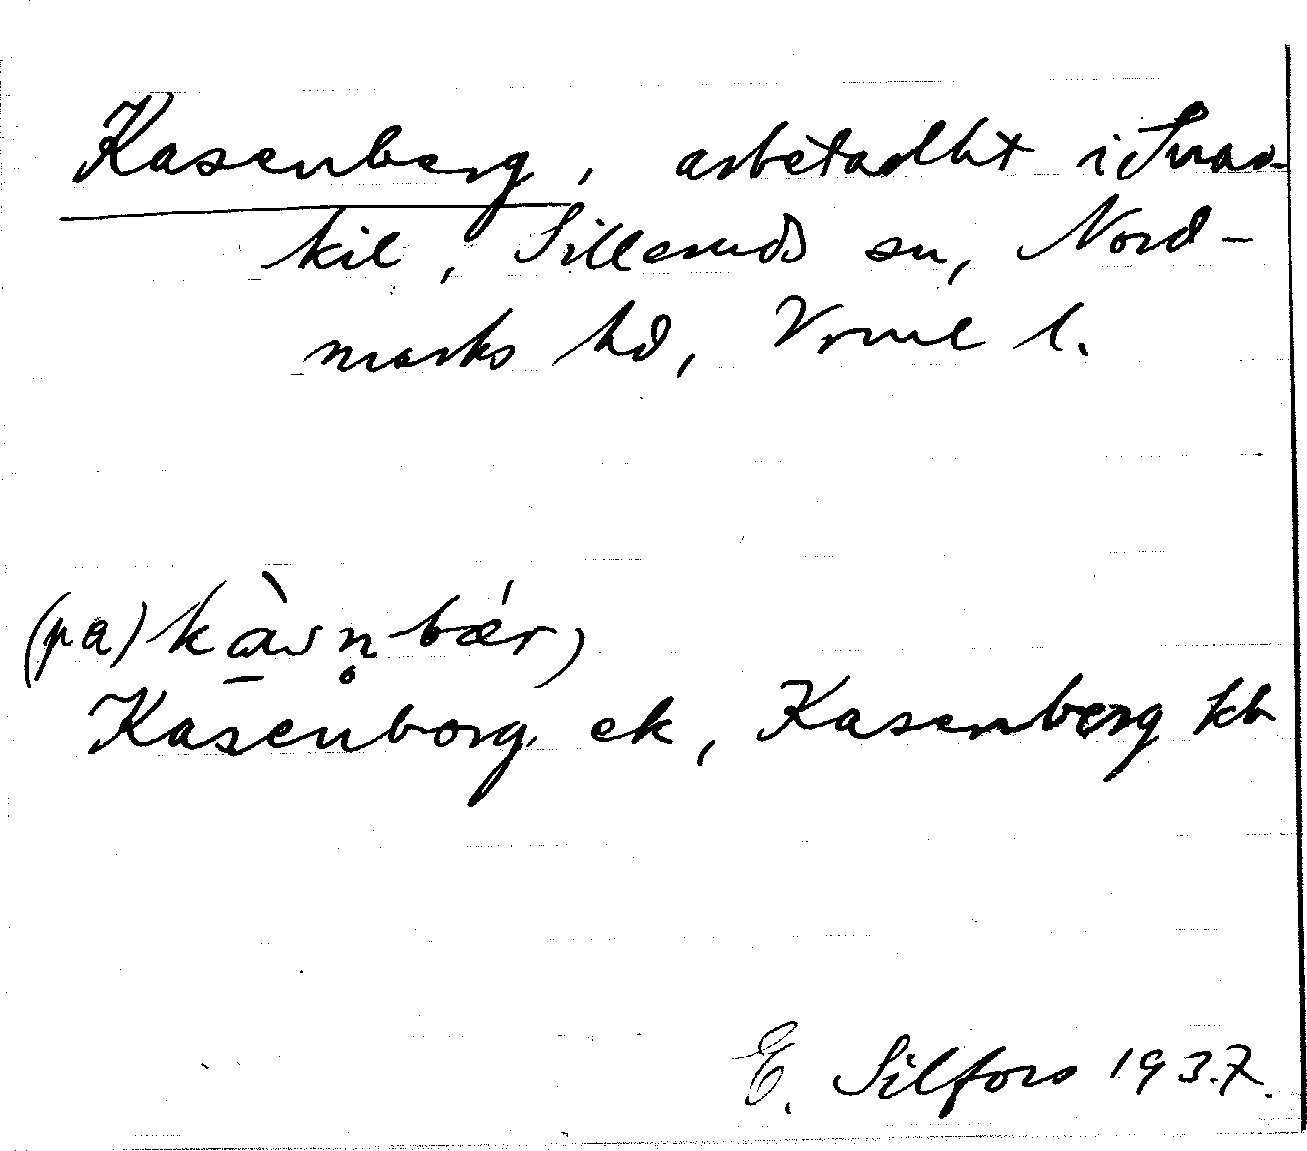 Kasenberg, arbetadlht i Svar-
kil, Silleruds sn, Nord-
marks hd, Vrml l.
(pa) kàsn̥bǽr,
Kasenborg ek, Kasenberg kb
E. Silfors 1937.